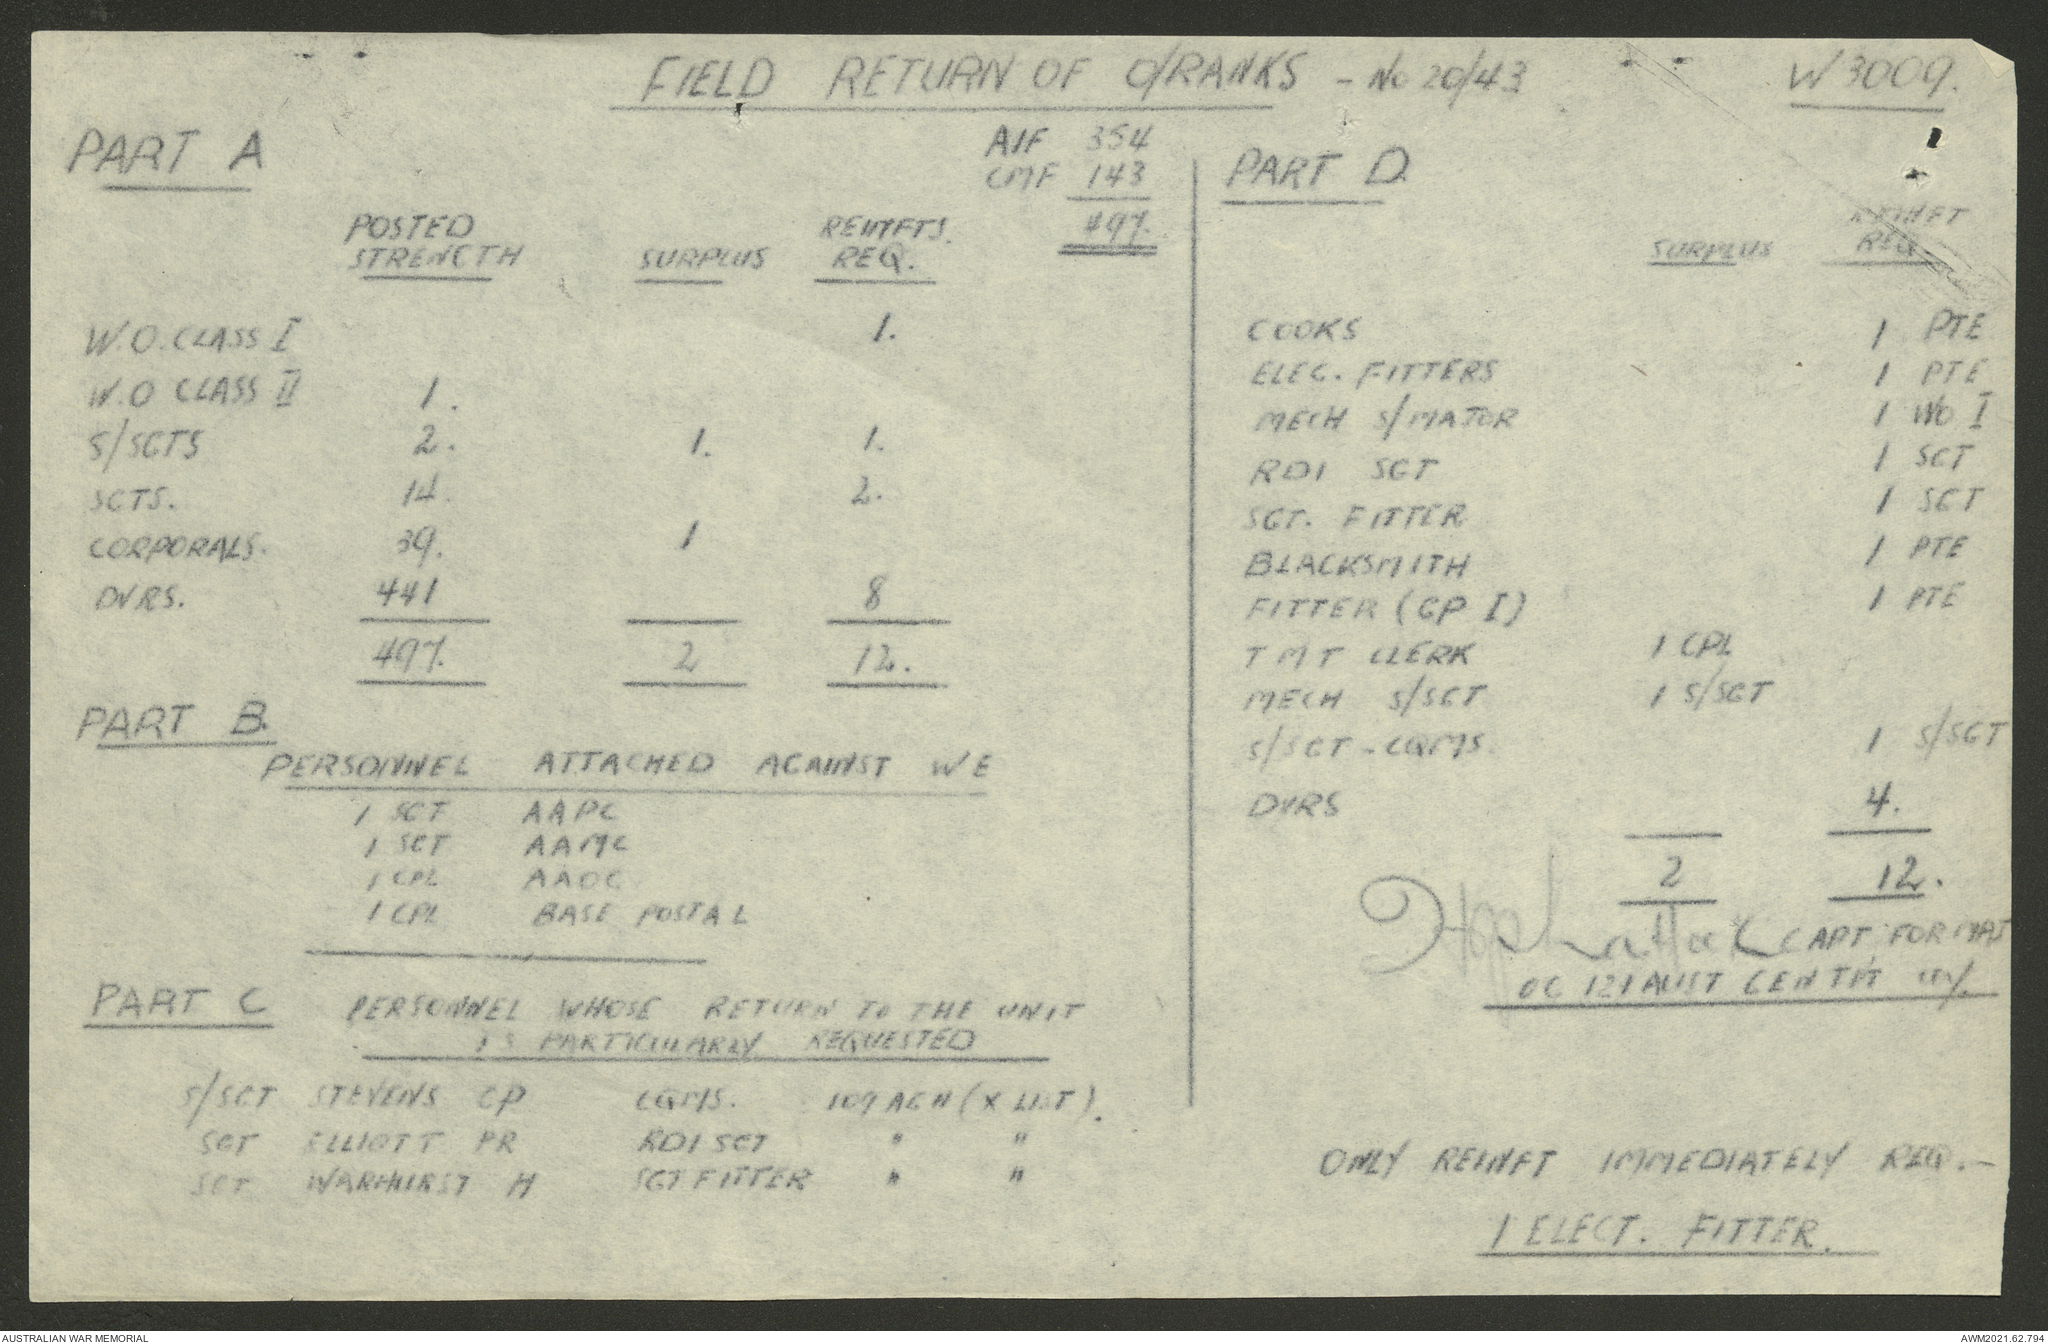 FIELD RETURN OF O/RANKS - No 20/43
W3009.
PART A
AIF 354
CMF 143
497.
POSTED STRENGTH SURPLUS REINFTS. REQ.
W.O. CLASS I 1.
W.O CLASS II 1.
S/SGTS 2. 1. 1.
SGTS. 14. 2.
CORPORALS. 39. 1
DVRS. 441 8
497. 2 12.
PART B.
PERSONNEL ATTACHED AGAINST WE
1 SGT AAPC
1 SGT AAMC
1 CPL AAOC
1 CPL BASE POSTAL
PART C PERSONNEL WHOSE RETURN TO THE UNIT
IS PARTICULARLY REQUESTED
S/SGT STEVENS CP CQMS. 109 AGH (X LIST).
SGT ELLIOTT PR RDI SGT " "
SGT WARHURST H SGT FITTER " "
PART D.
SURPLUS REINFT REQ
COOKS 1 PTE
ELEC. FITTERS 1 PTE
MECH S/MATOR 1 WO I
RDI SGT 1 SGT
SGT. FITTER 1 SGT
BLACKSMITH 1 PTE
FITTER (GP I) 1 PTE
TMT CLERK 1 CPL
MECH S/SGT 1 S/SGT
S/SGT - CQMS. 1 S/SGT
DVRS 4.
2 12.
CAPT FOR MAJ
OC 121 AUST GEN TPT Coy.
ONLY REINFT IMMEDIATELY REQ. -
1 ELECT. FITTER.
AUSTRALIAN WAR MEMORIAL
AWM2021.62.794